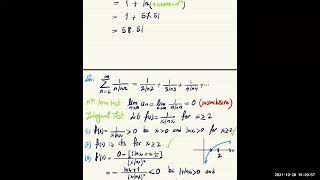 = 1 + ln(
= 1 + 57.51
= 58.51
Ex: ∞∑n=2 1/n lnn = 1/2ln2 + 1/3ln3 + 1/4ln4 + ...
nth term test: lim n→∞ un = lim n→∞ 1/n lnn = 0 (inconclusive)
Integral Test Let f(x) = 1/x lnx for x ≥ 2
(1) f(x) = 1/x lnx > 0 bc x > 0 and lnx > 0 for x ≥ 2
(2) f(x) is cts for x ≥ 2
(3) f'(x) = 0 - [lnx + x·1/x] / (x lnx)²
= - lnx + 1 / (x lnx)² < 0 bc 1+lnx > 0 and
2021-10-28 15:29:57